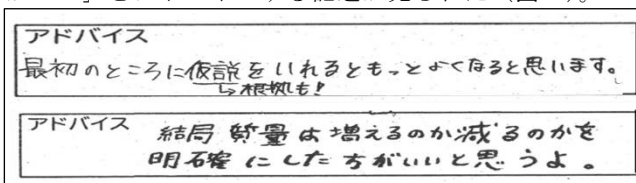 アドバイス
最初のところに仮説をいれるともっとよくなると思います。
↳根拠も!
アドバイス
結局質量は増えるのか減るのかを
明確にした方がいいと思うよ。